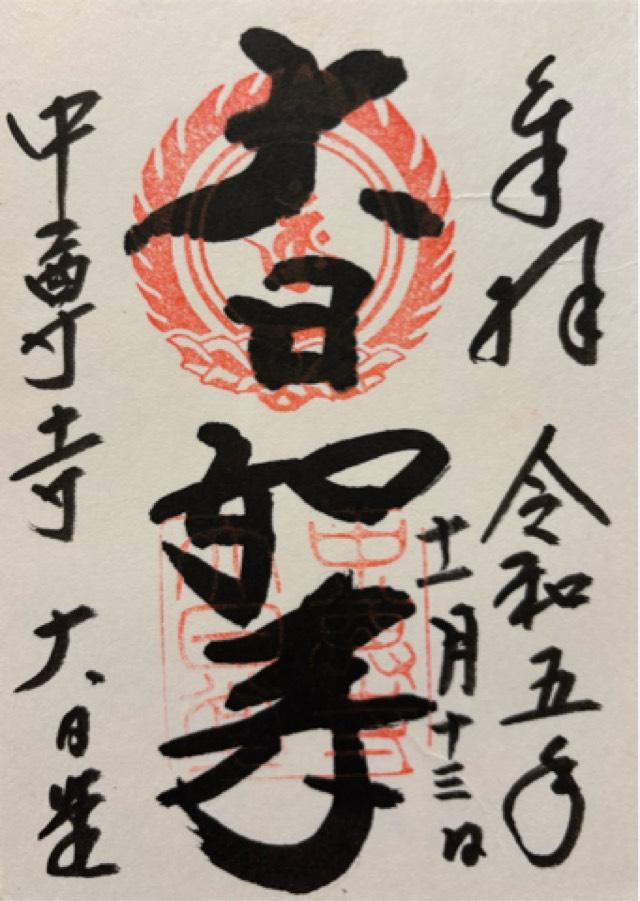 奉拝
令和五年
十一月十三日
大日如来
中尊寺 大日堂